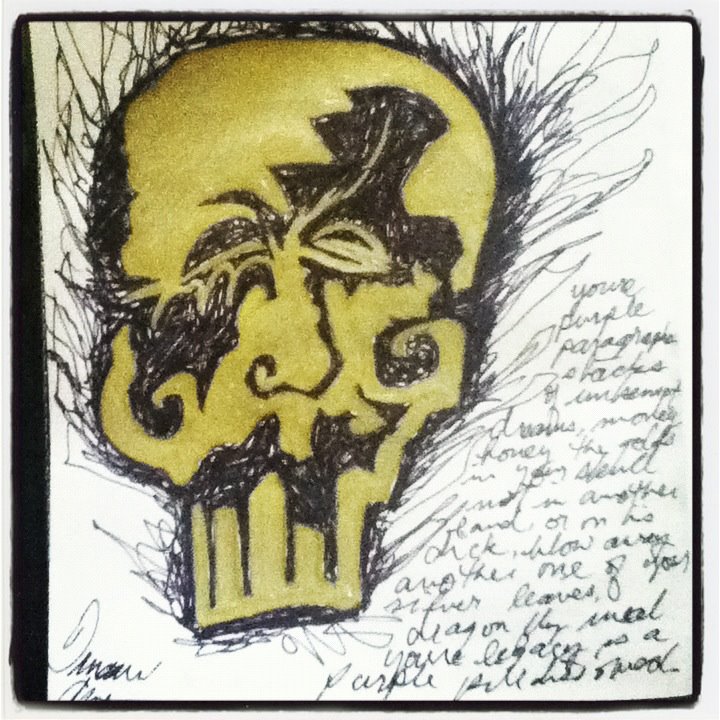 youre
purple
paragraph
stacks
& unkempt
dreams, money
honey the odds
in your skull
not in another
hand, or on his
dick, blow away
another one of your
silver leaves,
dragon fly meal
youre legacy is a
purple